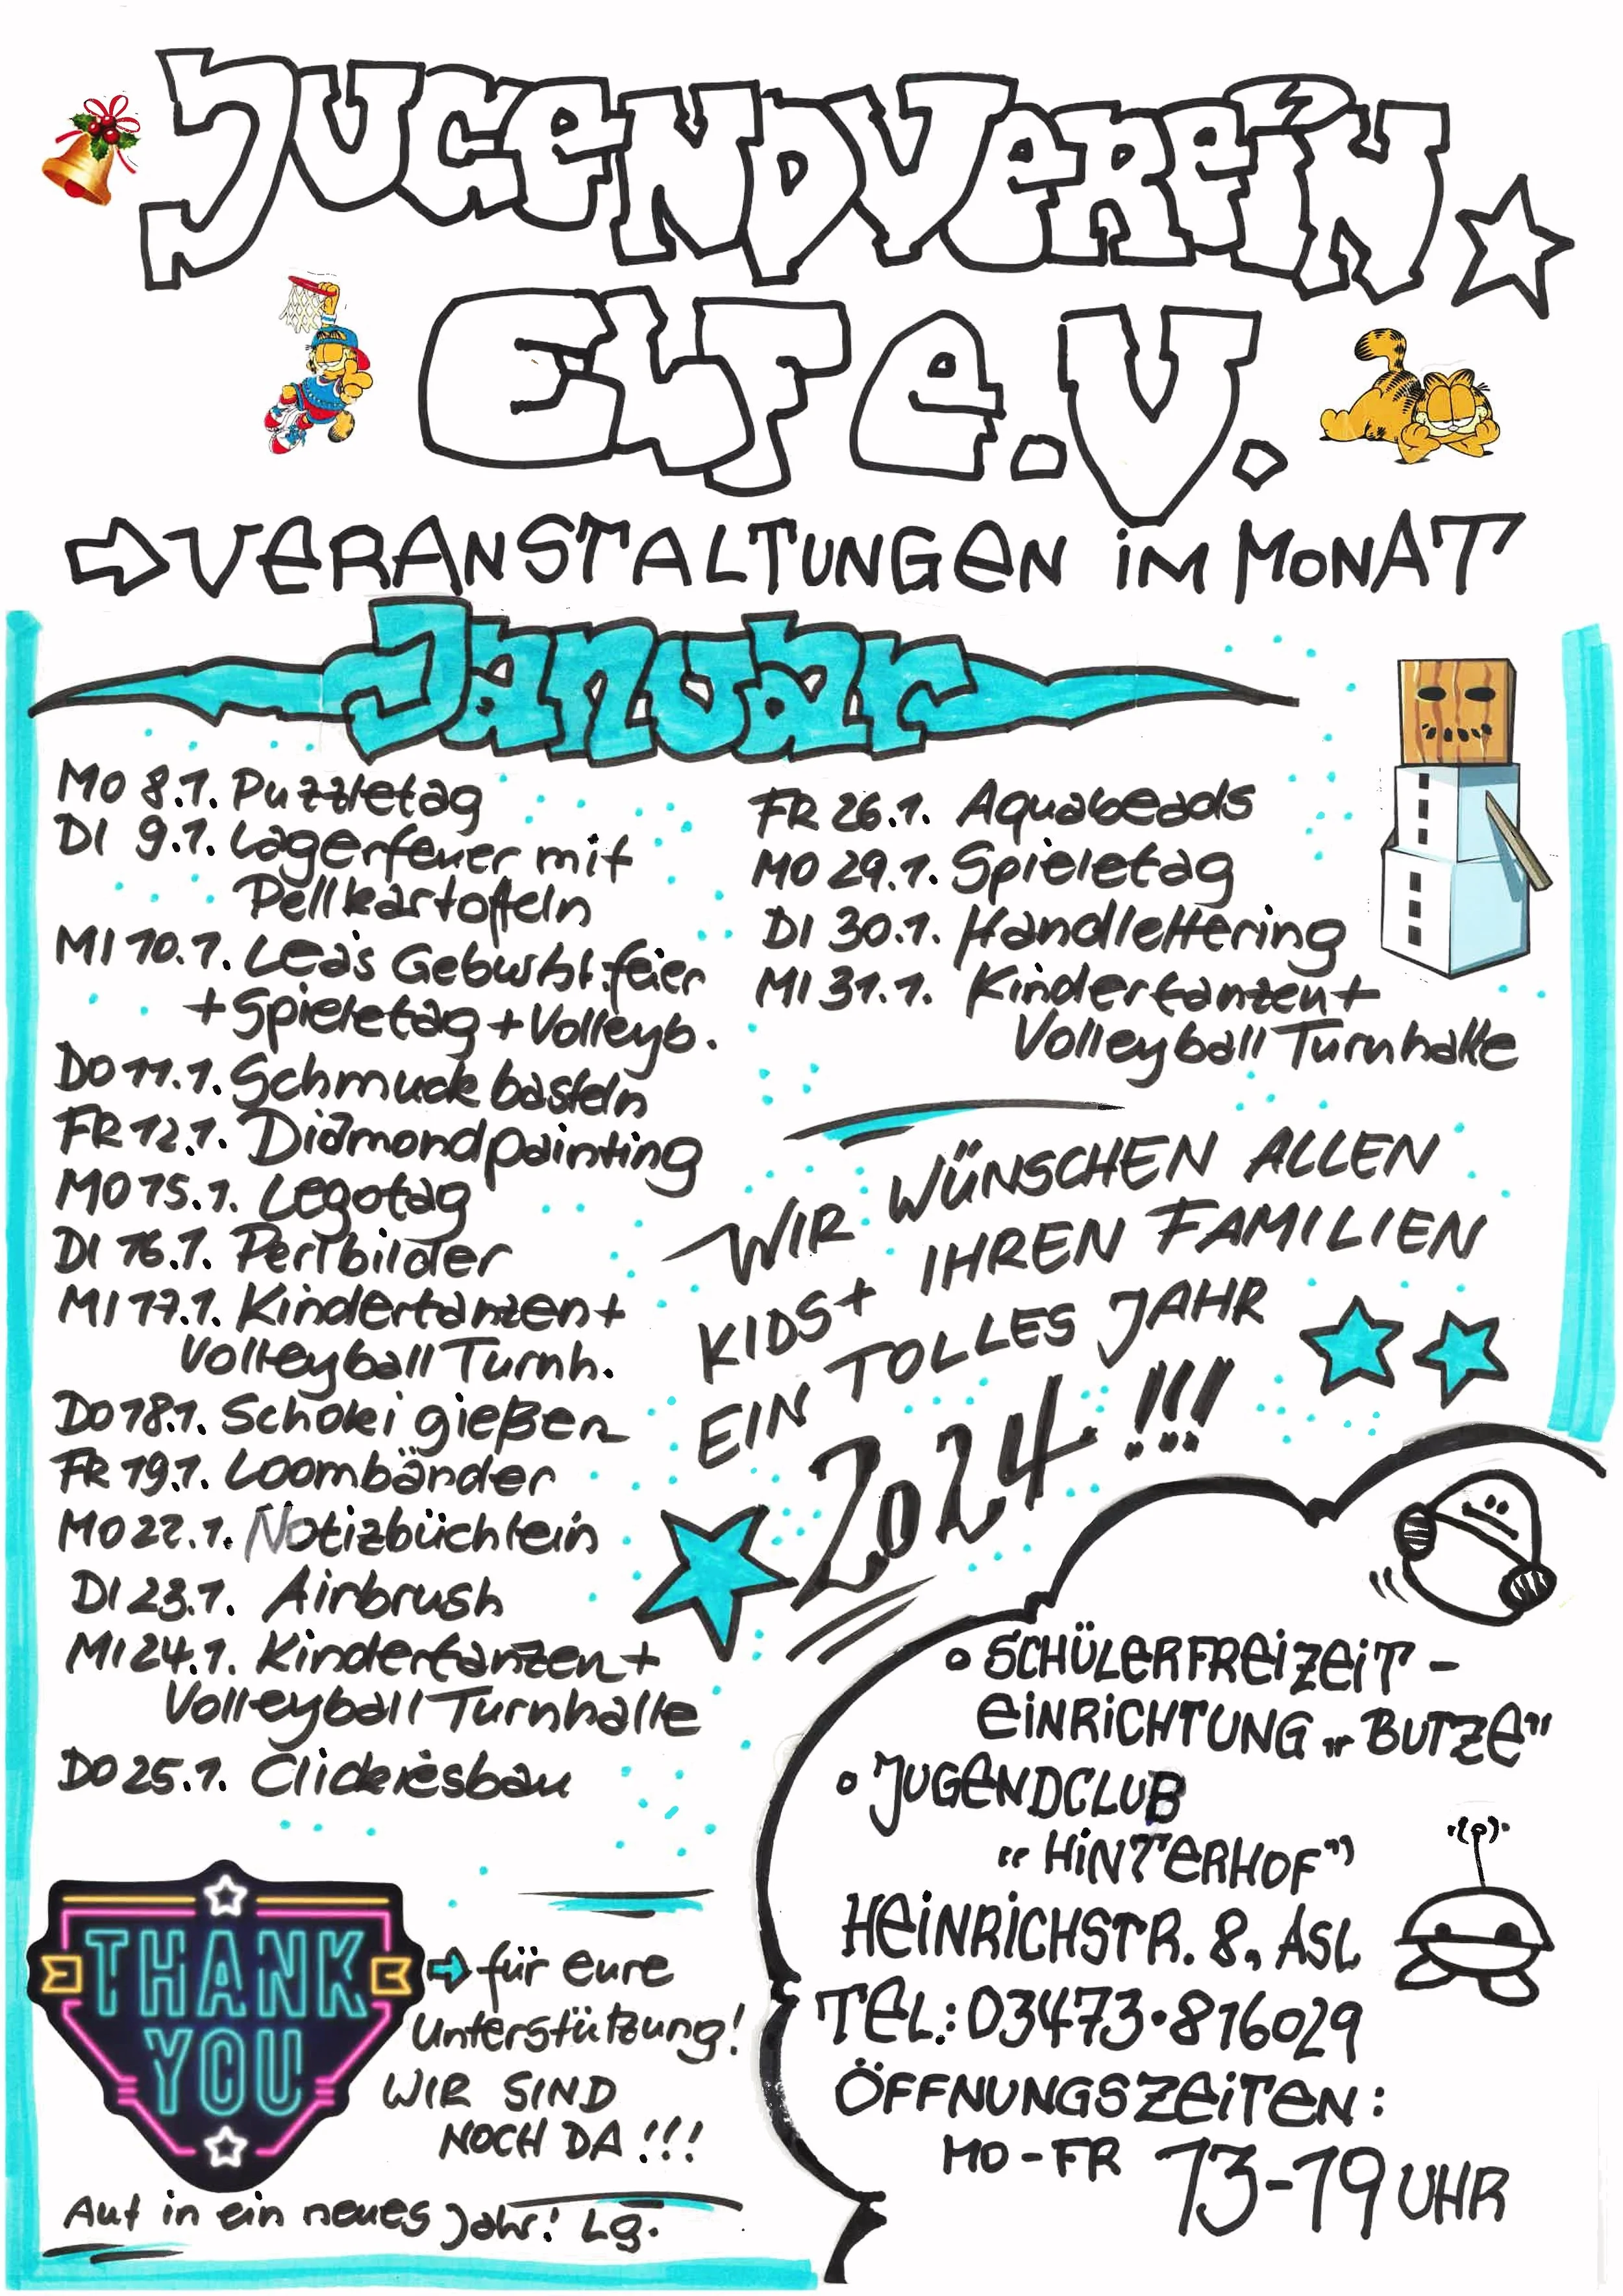 JUGENDVEREIN
ELF e.V.
VERANSTALTUNGEN IM MONAT
Januar
MO 8.1. Puzzletag
DI 9.1. Lagerfeuer mit
Pellkartoffeln
MI 10.1. Lea's Geburtst.feier
+ Spieletag + Volleyb.
DO 11.1. Schmuck basteln
FR 12.1. Diamondpainting
MO 15.1. Legotag
DI 16.1. Perlbilder
MI 17.1. Kindertanzen +
Volleyball Turnh.
DO 18.1. Schoki gießen
FR 19.1. Loombänder
MO 22.1. Notizbüchlein
DI 23.1. Airbrush
MI 24.1. Kindertanzen +
Volleyball Turnhalle
DO 25.1.
FR 26.1. Aquabeads
MO 29.1. Spieletag
DI 30.1. Handlettering
MI 31.1. Kindertanzen +
Volleyball Turnhalle
WIR WÜNSCHEN ALLEN
KIDS + IHREN FAMILIEN
EIN TOLLES JAHR
2024!!!
THANK
YOU
für eure
Unterstützung!
WIR SIND
NOCH DA!!!
Auf in ein neues Jahr! Lg.
SCHÜLERFREIZEIT-
EINRICHTUNG „BUTZE"
JUGENDCLUB
"HINTERHOF"
HEINRICHSTR. 8, ASL
TEL.: 03473·816029
ÖFFNUNGSZEITEN:
MO-FR 13-19 UHR